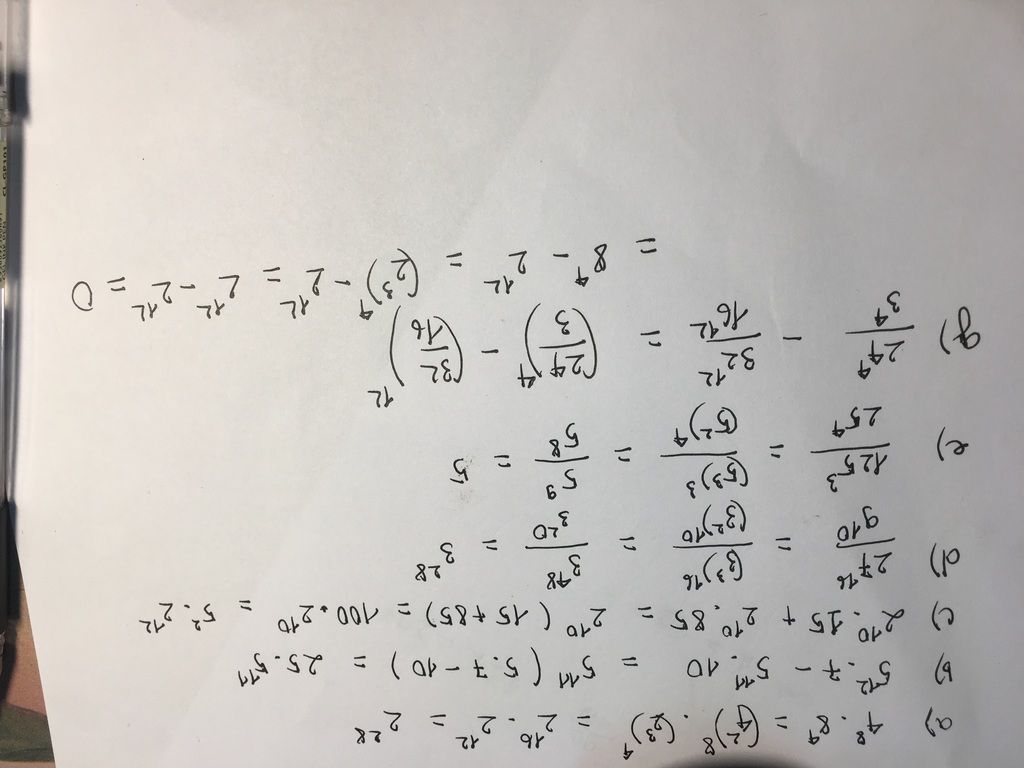 a) 4⁸ . 8⁴ = (4²)⁸ . (2³)⁴ = 2¹⁶ . 2¹² = 2²⁸
b) 5¹² . 7 - 5¹¹ . 10 = 5¹¹ (5 . 7 - 10) = 25 . 5¹¹
c) 2¹⁰ . 15 + 2¹⁰ . 85 = 2¹⁰ (15 + 85) = 100 . 2¹⁰ = 5² . 2¹²
d) 27¹⁶ / 9¹⁰ = (3³)¹⁶ / (3²)¹⁰ = 3⁴⁸ / 3²⁰ = 3²⁸
e) 125³ / 25⁴ = (5³)³ / (5²)⁴ = 5⁹ / 5⁸ = 5
g) 24⁴ / 3⁴ - 32¹² / 16¹² = (24 / 3)⁴ - (32 / 16)¹²
= 8⁴ - 2¹² = (2³)⁴ - 2¹² = 2¹² - 2¹² = 0